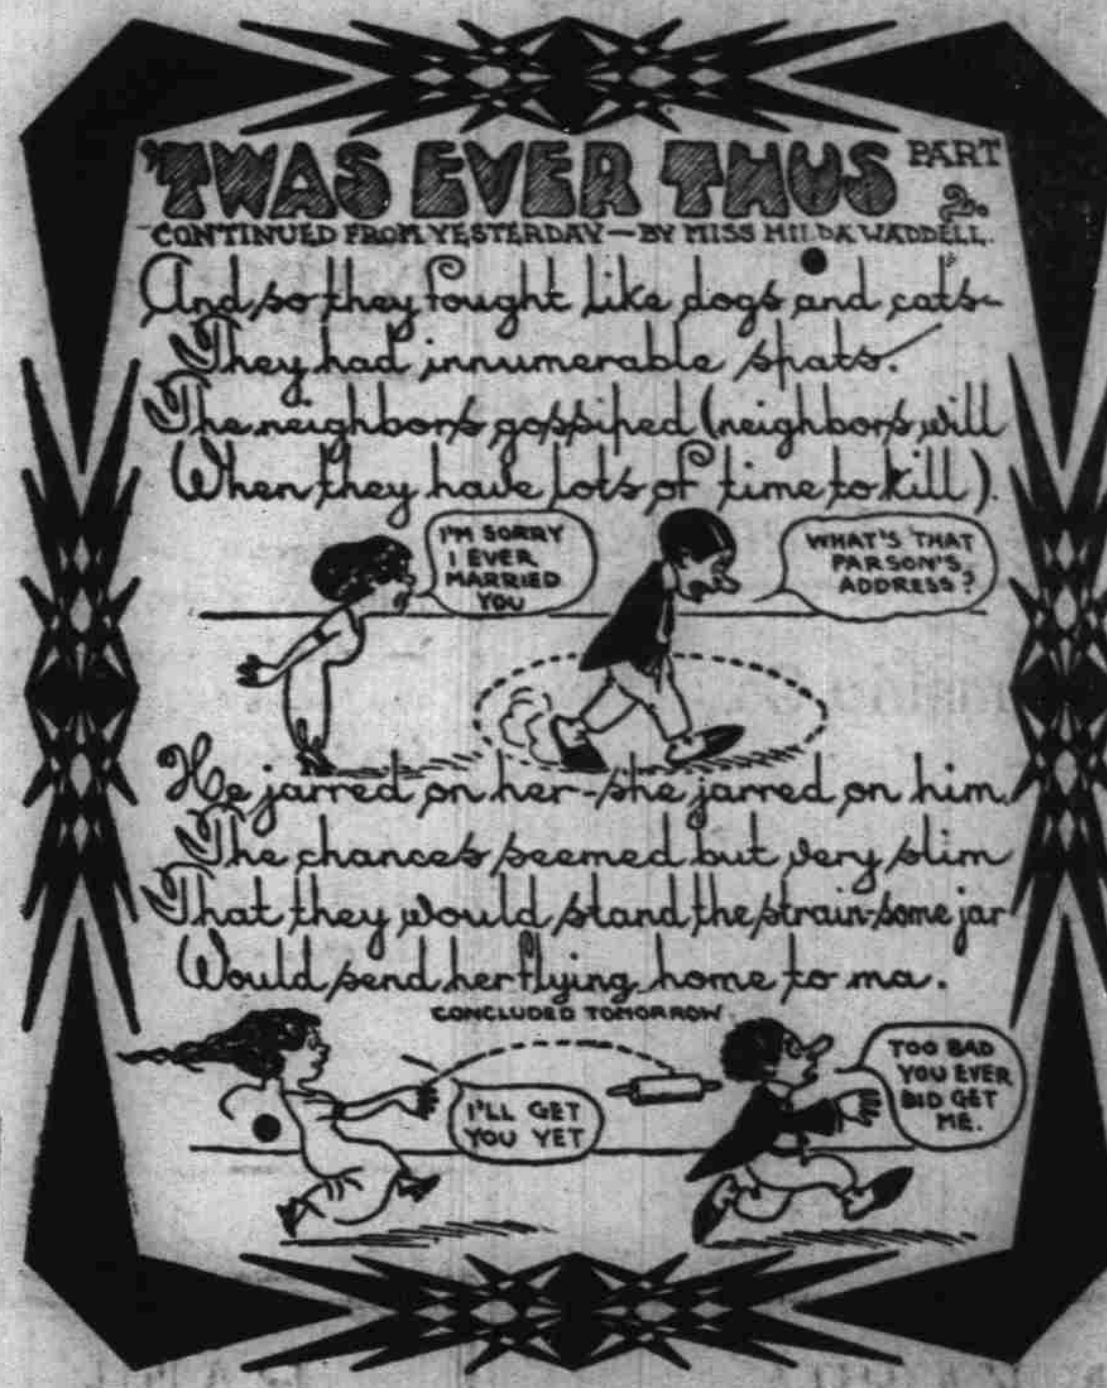 'TWAS EVER THUS PART 2.
CONTINUED FROM YESTERDAY — BY MISS HILDA WADDELL.
And so they fought like dogs and cats—
They had innumerable spats.
The neighbors gossiped (neighbors will
When they have lots of time to kill).
I'M SORRY
I EVER
MARRIED
YOU
WHAT'S THAT
PARSON'S
ADDRESS?
He jarred on her - she jarred on him.
The chances seemed but very slim
That they would stand the strain - some jar
Would send her flying home to ma.
CONCLUDED TOMORROW
I'LL GET
YOU YET
TOO BAD
YOU EVER
DID GET
ME.